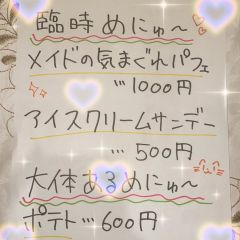 臨時めにゅ〜
メイドの気まぐれパフェ
…1000円
アイスクリームサンデー
…500円
大体あるめにゅ〜
ポテト…600円